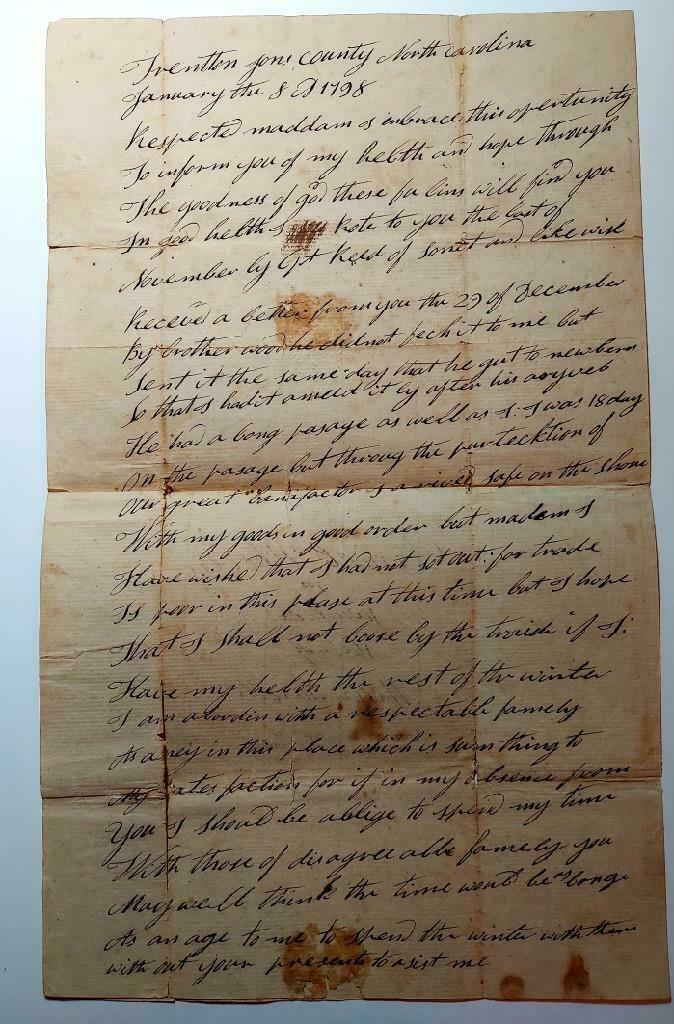 Trentton Jons County North Carolina
January the 8 D 1798
Respected maddam I imbrace this opertunity
To inform you of my helth and hope through
The goodness of god these fu lins will find you
In good helth I Rote to you the last of
November by Cpt Reed of and like wise
Receved a letter from you the 29 of December
By brother wood he did not fech it to me but
Sent it the same day that he gut to newbern
So that I had it by after his
He had a long pasage as well as I: I was 18 day
On the pasage but throug the purtecktion of
Our great benifactor I a rived safe on the shore
With my goods in good order but madam I
Have wished that I had not sot out: for trade
Is poor in this plase at this time but I hope
That I shall not loose by the if I:
Have my helth the rest of the winter
I am a bordin with a respectable famely
As aney in this place which is sum thing to
My sates faction for if in my absence from
You I should be ablige to spend my time
With those of disagree able famely you
May well think the time would be as longe
As an age to me to spend the winter with them
with out your presents to asist me